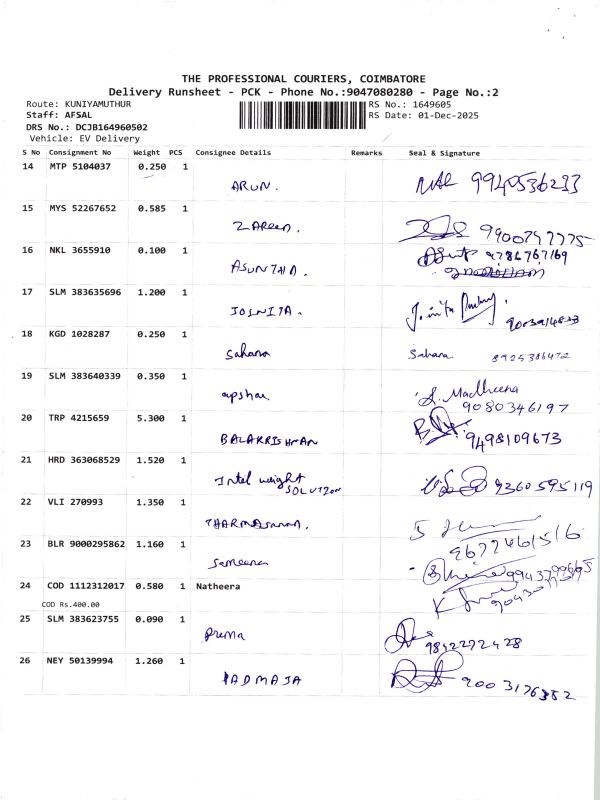 THE PROFESSIONAL COURIERS, COIMBATORE
Delivery Runsheet - PCK - Phone No.:9047080280 - Page No.:2
Route: KUNIYAMUTHUR
Staff: AFSAL
DRS No.: DCJB164960502
Vehicle: EV Delivery
RS No.: 1649605
RS Date: 01-Dec-2025
S No Consignment No Weight PCS Consignee Details Remarks Seal & Signature
14 MTP 5104037 0.250 1
ARUN. 9940536233
15 MYS 52267652 0.585 1
ZAREEN. 9900747775
16 NKL 3655910 0.100 1
ASUNTHA. 9786767169
17 SLM 383635696 1.200 1
JOSNITA.
18 KGD 1028287 0.250 1
Sahana Sahara 8925386472
19 SLM 383640339 0.350 1
apshar S. Madheena
9080346197
20 TRP 4215659 5.300 1
BALAKRISHNAN 9498109673
21 HRD 363068529 1.520 1
Intel weight
SOLUTION 9360595119
22 VLI 270993 1.350 1
9677461516
23 BLR 9000295862 1.160 1
Sameena
24 COD 1112312017 0.580 1 Natheera
COD Rs.400.00
25 SLM 383623755 0.090 1
Prema 9842272428
26 NEY 50139994 1.260 1
PADMAJA 9003176352